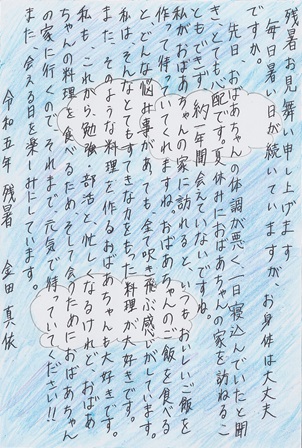 残暑お見舞い申し上げます
毎日暑い日が続いていますが、お身体は大丈夫
ですか。
先日、おばあちゃんの体調が悪く、一日寝込んでいたと聞
き、とても心配です。夏休みにおばあちゃんの家を訪ねるこ
ともできず、約一年間会えていないですね。
私がおばあちゃんの家に訪れると、いつもおいしいご飯を
作って待っていてくれますね。おばあちゃんのご飯を食べる
と、どんな悩み事があっても、全て吹き飛ぶ感じがしています。
私はそんなとてもすてきな力をもった料理が大好きです。
また、そのような料理を作るおばあちゃんも大好きです。
私も、これから、勉強、部活と、忙しくなるけれど、おばあ
ちゃんの料理を食べるため、そして会うためにおばあちゃん
の家に行くので、それまで元気で待っていてください!!
また、会える日を楽しみにしています。
令和五年 残暑 金田 真依